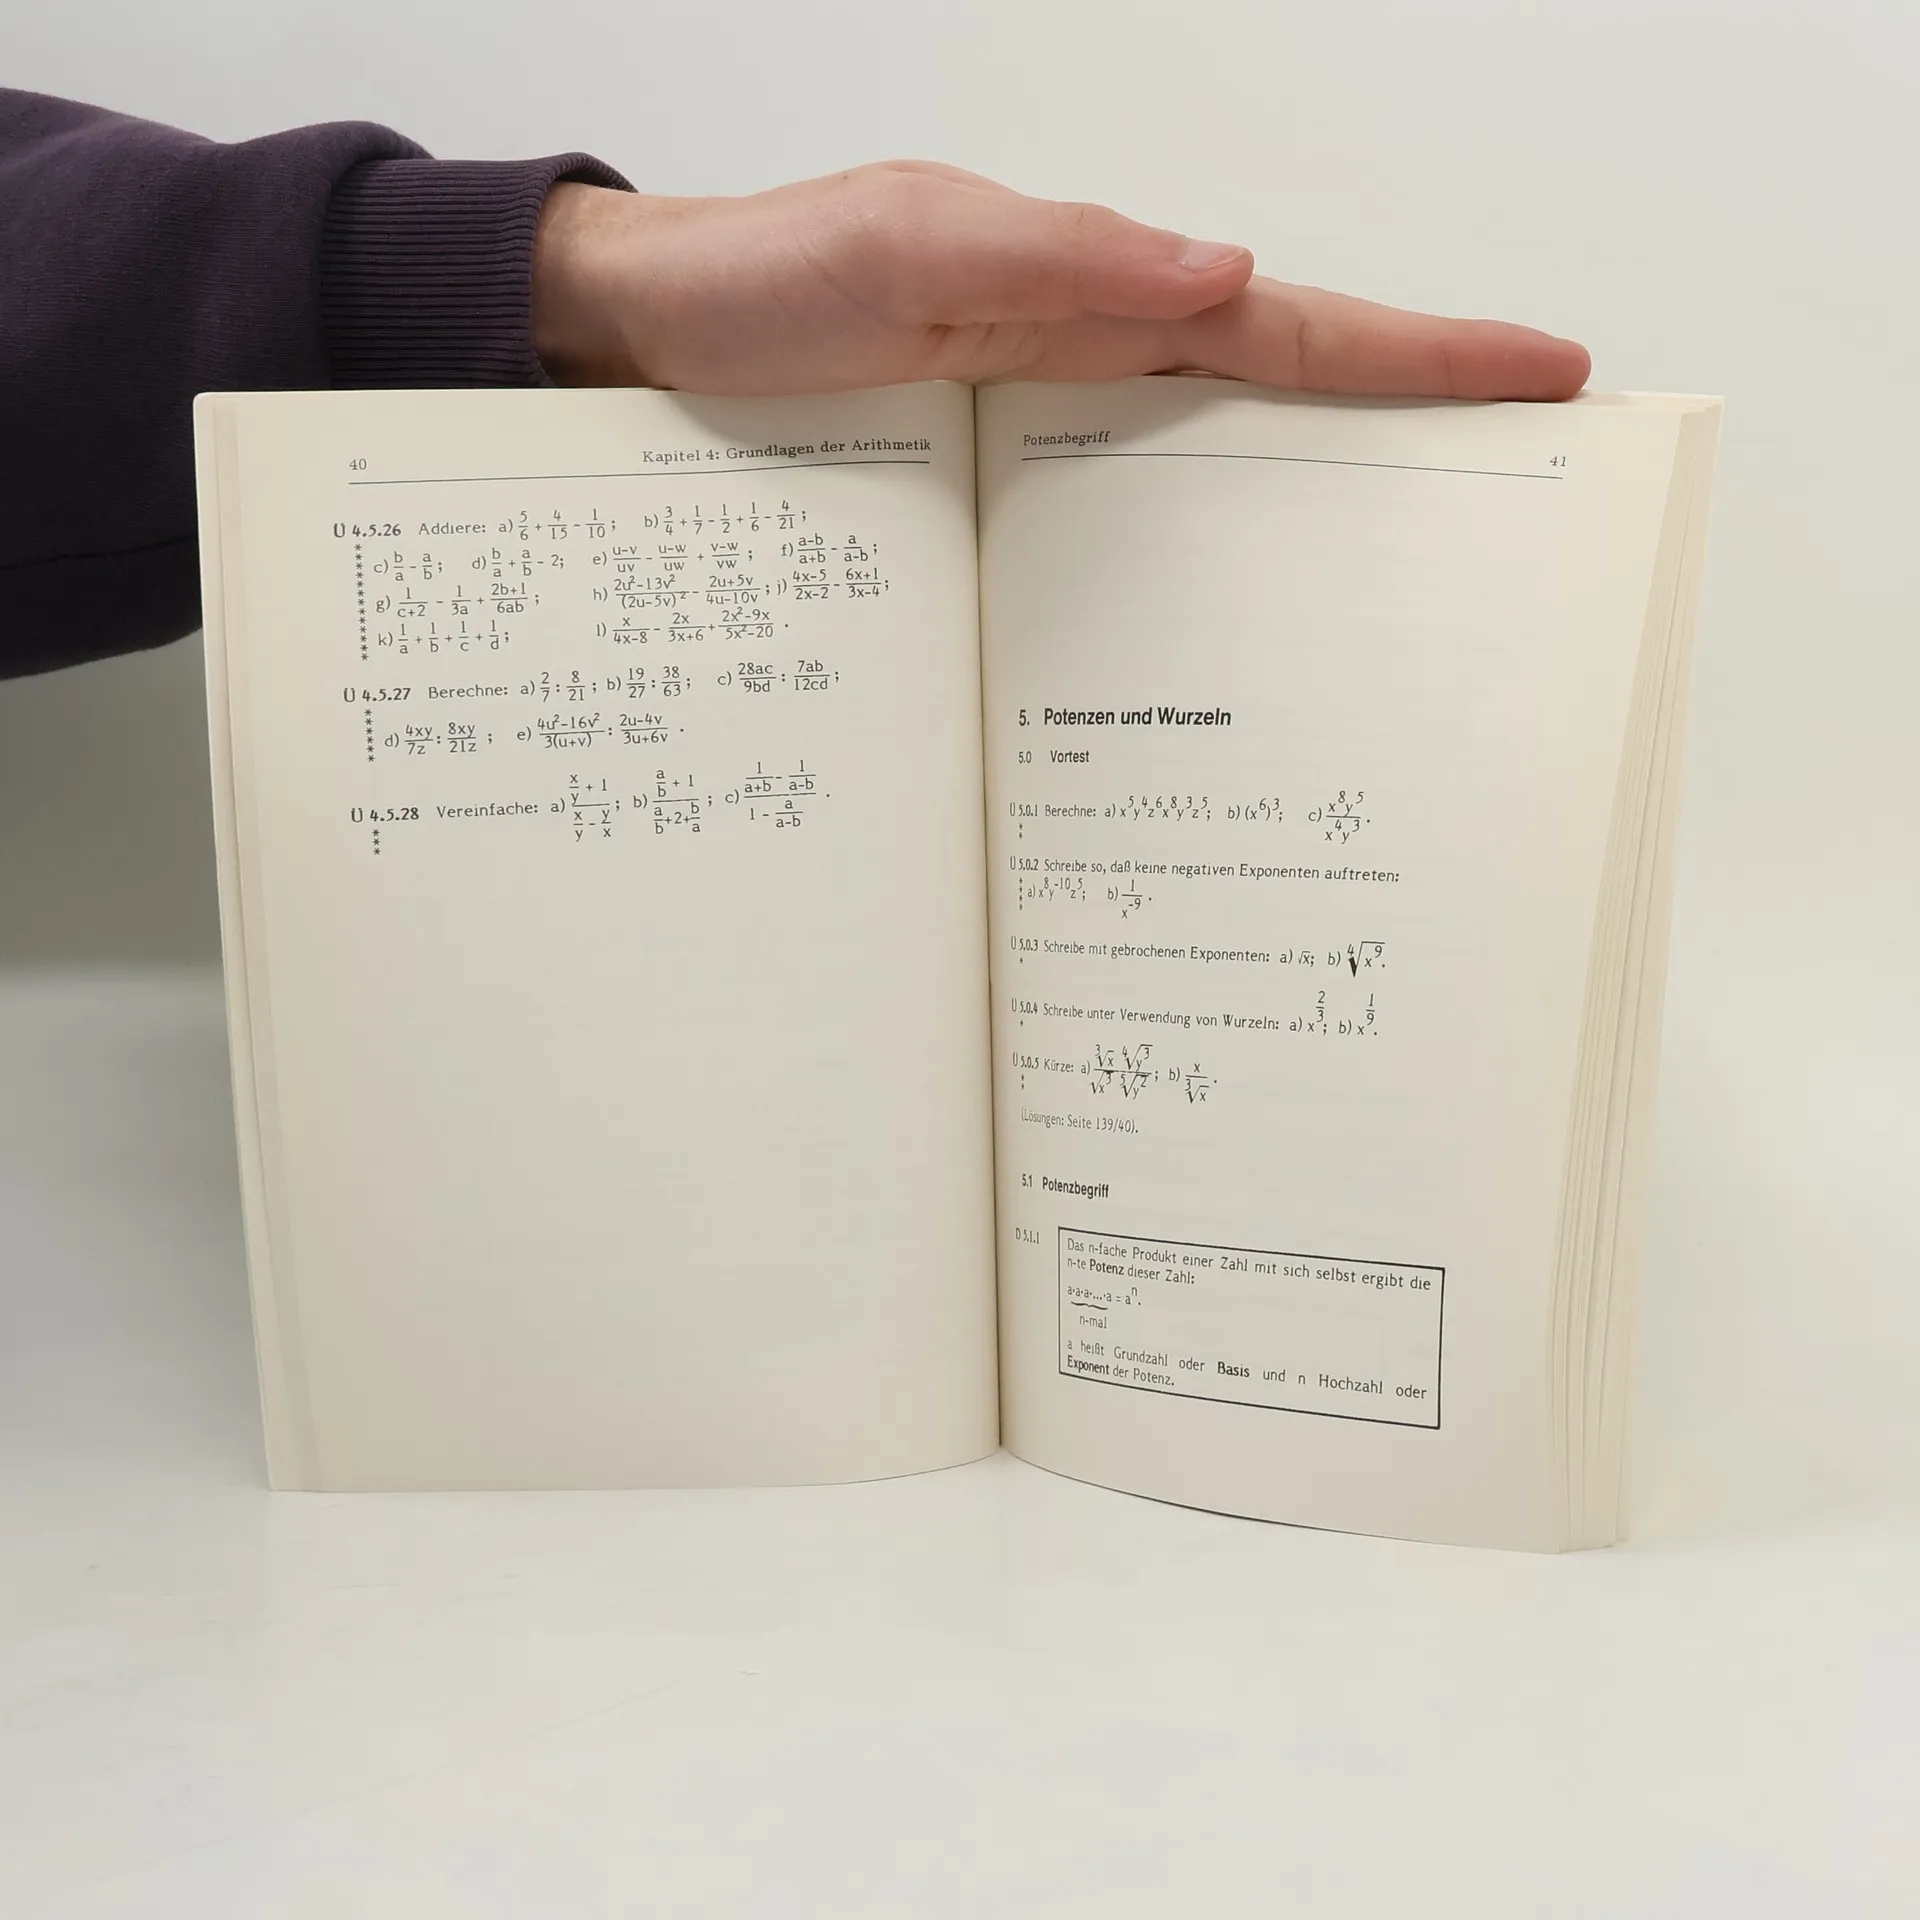 40 Kapitel 4: Grundlagen der Arithmetik
Ü 4.5.26 Addiere: a) 5/6 + 4/15 - 1/10 ; b) 3/4 + 1/7 - 1/2 + 1/6 - 4/21 ;
c) b/a - a/b ; d) b/a + a/b - 2; e) u-v/uv - u-w/uw + v-w/vw ; f) a-b/a+b - a/a-b ;
g) 1/c+2 - 1/3a + 2b+1/6ab ; h) 2u²-13v²/(2u-5v)² - 2u+5v/4u-10v ; j) 4x-5/2x-2 - 6x+1/3x-4 ;
k) 1/a + 1/b + 1/c + 1/d ; l) x/4x-8 - 2x/3x+6 + 2x²-9x/5x²-20 .
Ü 4.5.27 Berechne: a) 2/7 : 8/21 ; b) 19/27 : 38/63 ; c) 28ac/9bd : 7ab/12cd ;
d) 4xy/7z : 8xy/21z ; e) 4u²-16v²/3(u+v) : 2u-4v/3u+6v .
Ü 4.5.28 Vereinfache: a) (x/y + 1)/(x/y - y/x) ; b) (a/b + 1)/(a/b+2+b/a) ; c) (1/a+b - 1/a-b)/(1 - a/a-b) .
Potenzbegriff 41
5. Potenzen und Wurzeln
5.0 Vortest
Ü 5.0.1 Berechne: a) x⁵y⁴z⁶x⁸y³z⁵; b) (x⁶)³; c) x⁸y⁵/x⁴y³ .
Ü 5.0.2 Schreibe so, daß keine negativen Exponenten auftreten:
a) x⁸y⁻¹⁰z⁵; b) 1/x⁻⁹ .
Ü 5.0.3 Schreibe mit gebrochenen Exponenten: a) √x; b) ⁴√x⁹.
Ü 5.0.4 Schreibe unter Verwendung von Wurzeln: a) x^2/3; b) x^1/9.
Ü 5.0.5 Kürze: a) ³√x ⁴√y³/√x³ ⁵√y² ; b) x/³√x .
(Lösungen: Seite 139/40).
5.1 Potenzbegriff
D 5.1.1 Das n-fache Produkt einer Zahl mit sich selbst ergibt die
n-te Potenz dieser Zahl:
a·a·a·...·a = aⁿ.
n-mal
a heißt Grundzahl oder Basis und n Hochzahl oder
Exponent der Potenz.